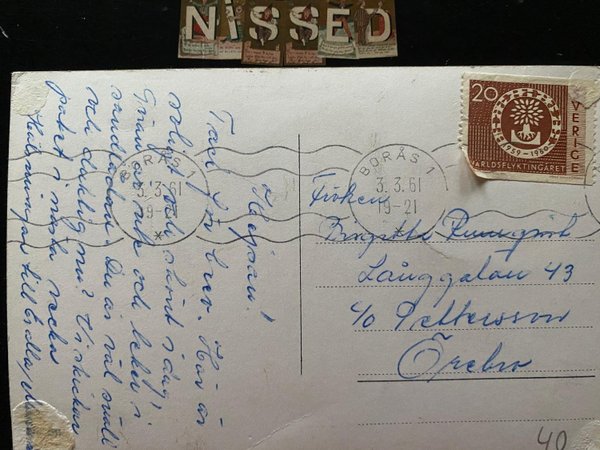 NiSSED
Hejsan!
Tack för brev. Här är
soligt och skönt i dag!
ute och leker i
sandlådan. Du är väl snäll
och duktig nu? Vi skickar
paket i nästa vecka
Hälsningar till
BORÅS 1
3.3.61
19-21
BORÅS 1
3.3.61
19-21
20
SVERIGE
1959-1960
VÄRLDSFLYKTINGÅRET
Fröken
Birgitta
Långgatan 43
c/o Pettersson
Örebro
40